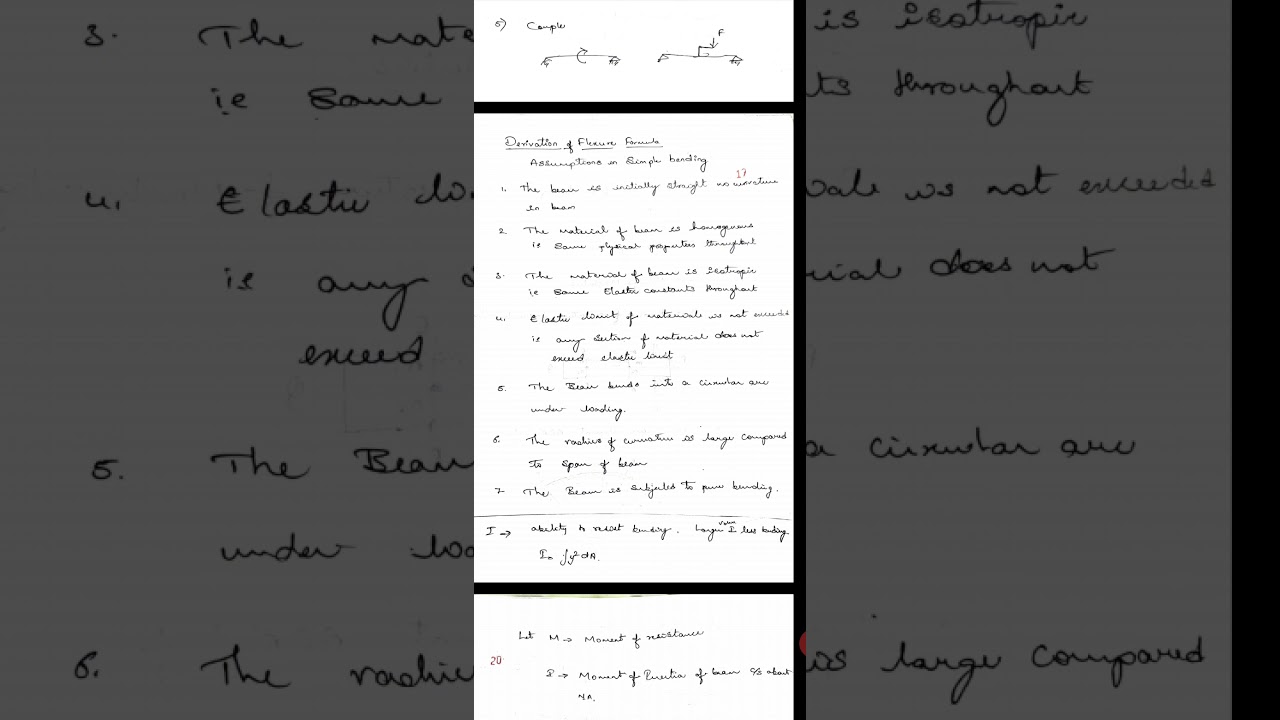 5) Couple
F
Derivation of Flexure Formula
Assumptions in Simple bending
17
1. The beam is initially straight no curvature
in beam
2. The material of beam is homogenous
ie Same physical properties throughout
3. The material of beam is isotropic
ie Same Elastic constants throughout
4. Elastic limit of materials is not exceeded
ie any section of material does not
exceed elastic limit
5. The Beam bends into a circular arc
under loading.
6. The radius of curvature is large compared
to span of beam
7. The Beam is subjected to pure bending.
I → ability to resist bending. Larger value I less bending
I = ∫y² dA.
Let M → Moment of resistance
20
I → Moment of Inertia of beam c/s about
NA.